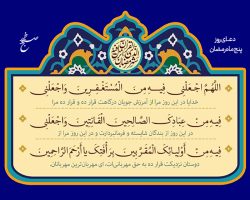 دعای روز
پنجم ماه رمضان
اللهُمَّ اجْعَلْنِي فِيهِ مِنَ الْمُسْتَغْفِرِينَ وَاجْعَلْنِي
خدایا در این روز مرا از آمرزش جویان درگاهت قرار ده و قرار ده مرا
فِيهِ مِنْ عِبَادِكَ الصَّالِحِينَ الْقَانِتِينَ وَاجْعَلْنِي
در این روز از بندگان شایسته و فرمانبردارت و در این روز مرا از
فِيهِ مِنْ أَوْلِيَائِكَ الْمُقَرَّبِينَ بِرَأْفَتِكَ يَا أَرْحَمَ الرَّاحِمِينَ
دوستان نزدیکت قرار ده به حق مهربانی‌ات، ای مهربان‌ترین مهربانان.